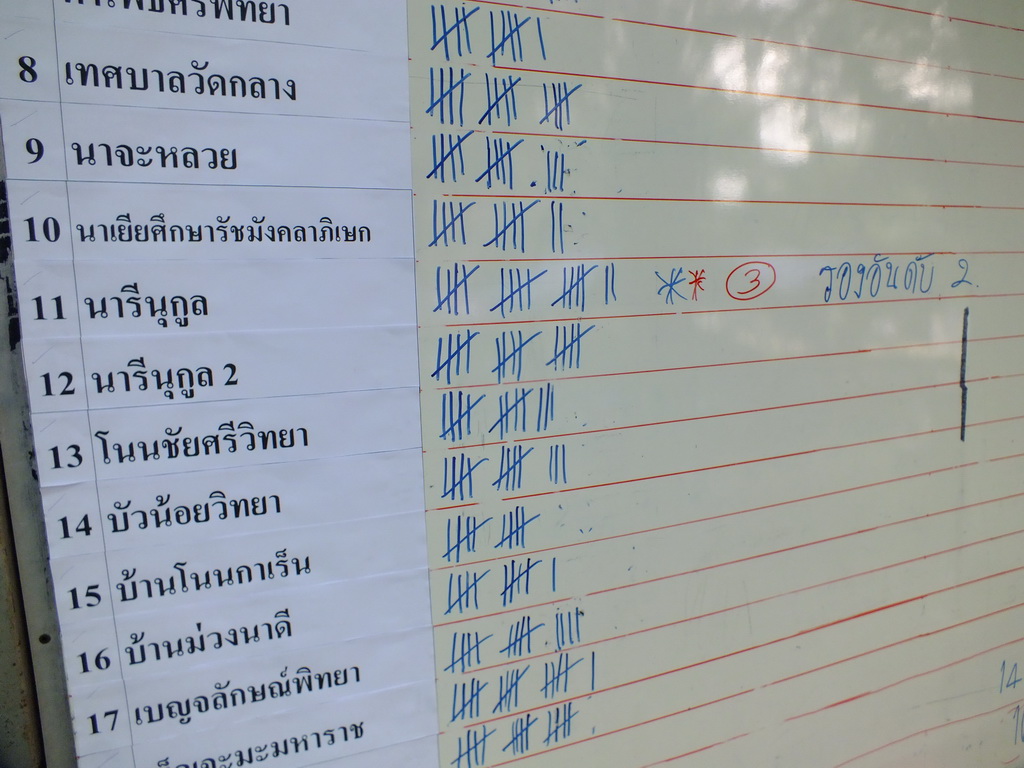 8 เทศบาลวัดกลาง
9 นาจะหลวย
10 นาเยียศึกษารัชมังคลาภิเษก
11 นารีนุกูล ③ รองอันดับ 2.
12 นารีนุกูล 2
13 โนนชัยศรีวิทยา
14 บัวน้อยวิทยา
15 บ้านโนนกาเร็น
16 บ้านม่วงนาดี
17 เบญจลักษณ์พิทยา
14